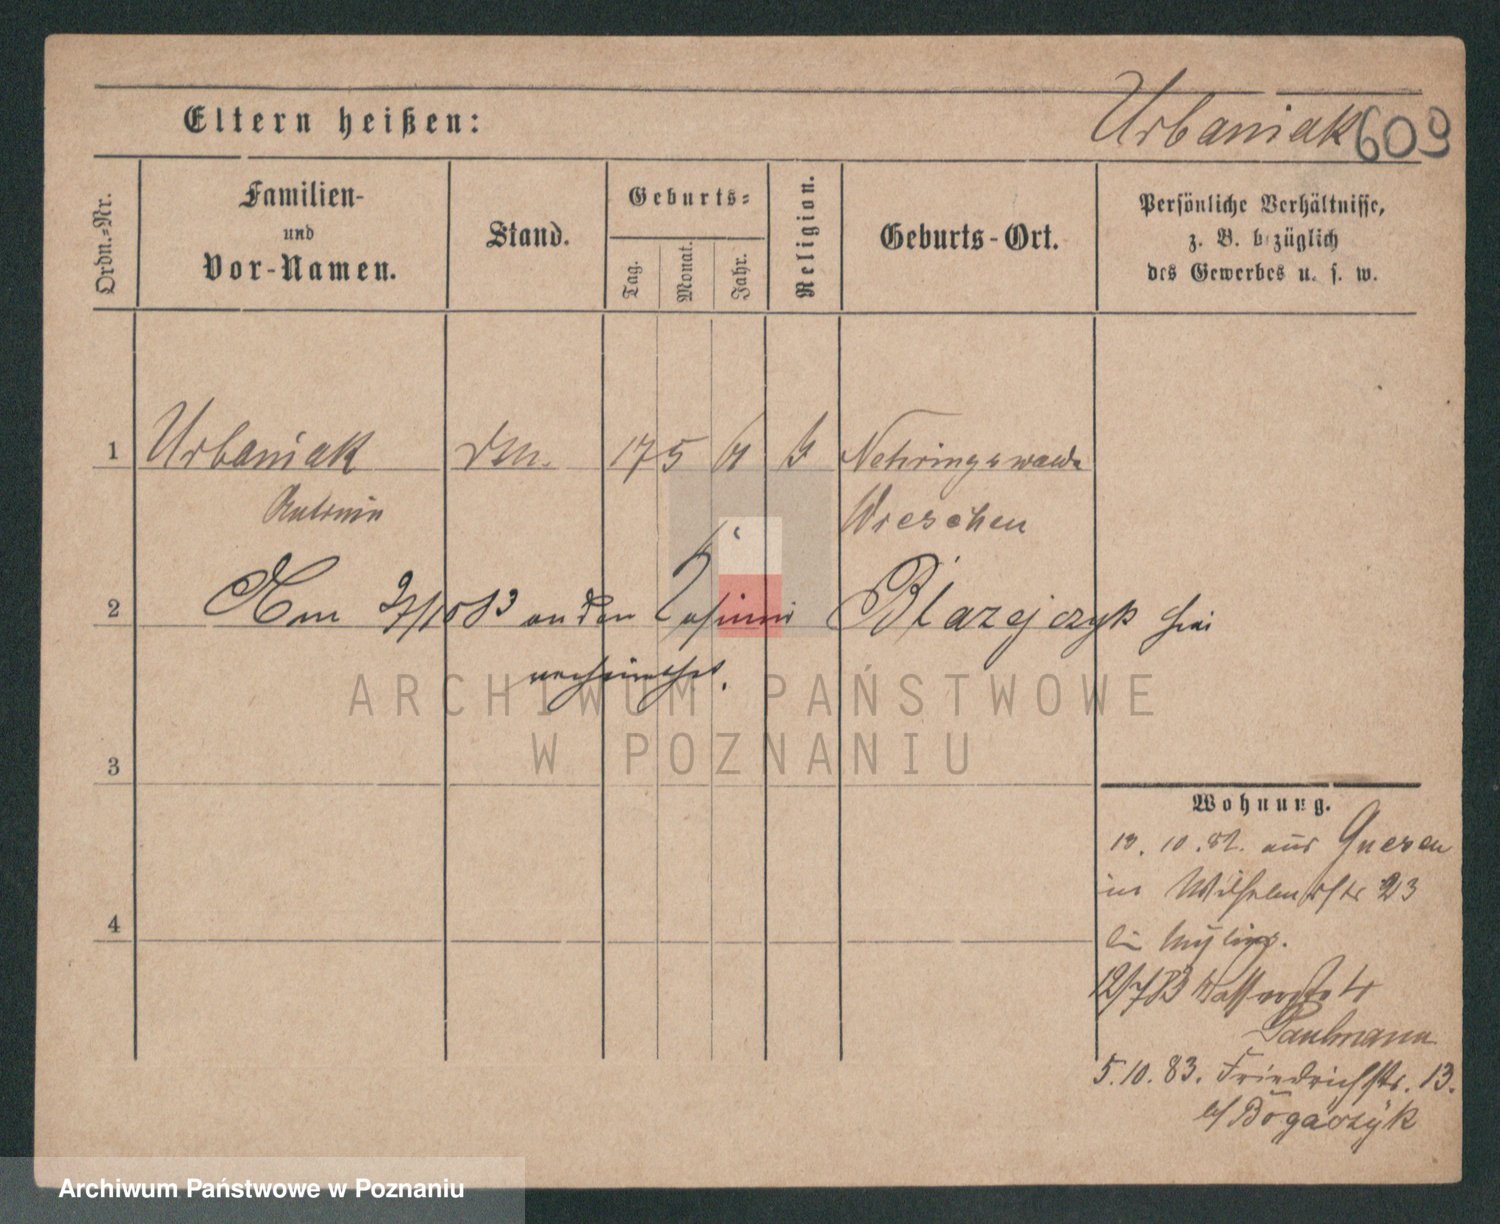 Eltern heißen:
Urbaniak 609
Ordn.-Nr.
Familien-
und
Vor-Namen.
Stand.
Geburts-
Tag.
Monat.
Jahr.
Religion.
Geburts-Ort.
Persönliche Verhältnisse,
z. B. bezüglich
des Gewerbes u. s. w.
1 Urbaniak 17 5 61 Nehringswalde
Antonie Wreschen
2 Am 27/10 83 an den Casimir Blazejczyk hier
verheirathet.
ARCHIWUM PAŃSTWOWE
W POZNANIU
3
Wohnung.
10. 82. aus Gnesen
in Wilhelmstr 23
4
12/7 83 Wasserstr
Paulmann
5. 10. 83. Friedrichstr. 13.
b/ Bogarzyk
Archiwum Państwowe w Poznaniu